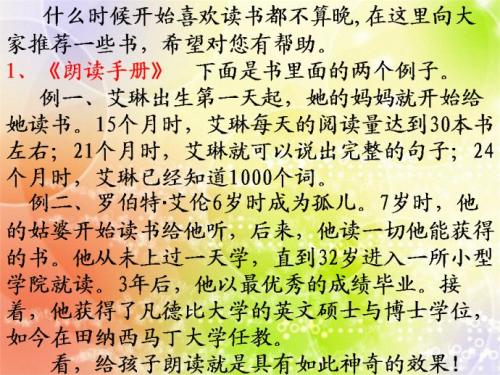 什么时候开始喜欢读书都不算晚,在这里向大
家推荐一些书，希望对您有帮助。
1、《朗读手册》　下面是书里面的两个例子。
例一、艾琳出生第一天起，她的妈妈就开始给
她读书。15个月时，艾琳每天的阅读量达到30本书
左右；21个月时，艾琳就可以说出完整的句子；24
个月时，艾琳已经知道1000个词。
例二、罗伯特·艾伦6岁时成为孤儿。7岁时，他
的姑婆开始读书给他听，后来，他读一切他能获得
的书。他从未上过一天学，直到32岁进入一所小型
学院就读。3年后，他以最优秀的成绩毕业。接
着，他获得了凡德比大学的英文硕士与博士学位，
如今在田纳西马丁大学任教。
看，给孩子朗读就是具有如此神奇的效果！